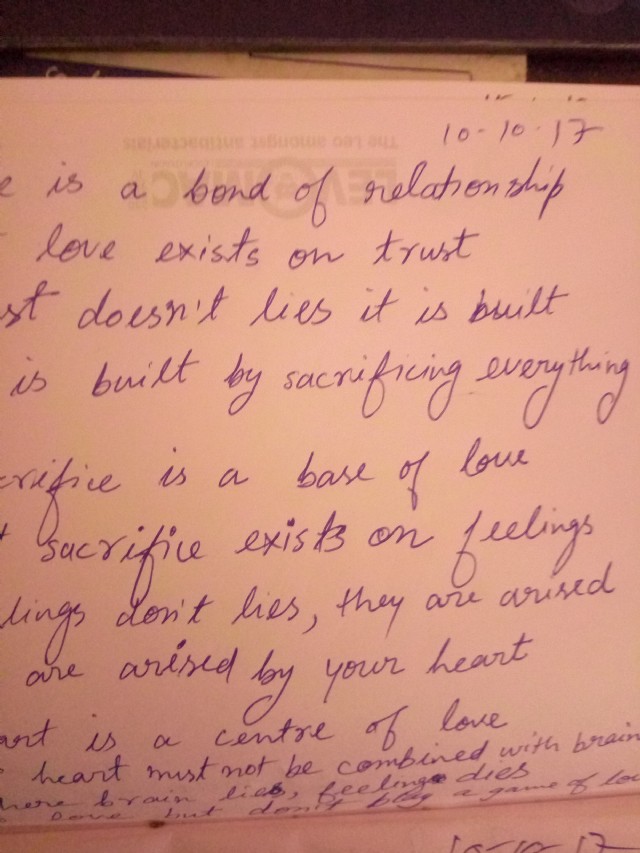 10-10-17
e is a bond of relationship
love exists on trust
st doesn't lies it is built
is built by sacrificing everything
crifice is a base of love
sacrifice exists on feelings
lings don't lies, they are arised
are arised by your heart
art is a centre of love
heart must not be combined with brain
here brain lies, feelings dies
Love but don't play a game of lov
The Leo amongst antibacterials
10-10-17